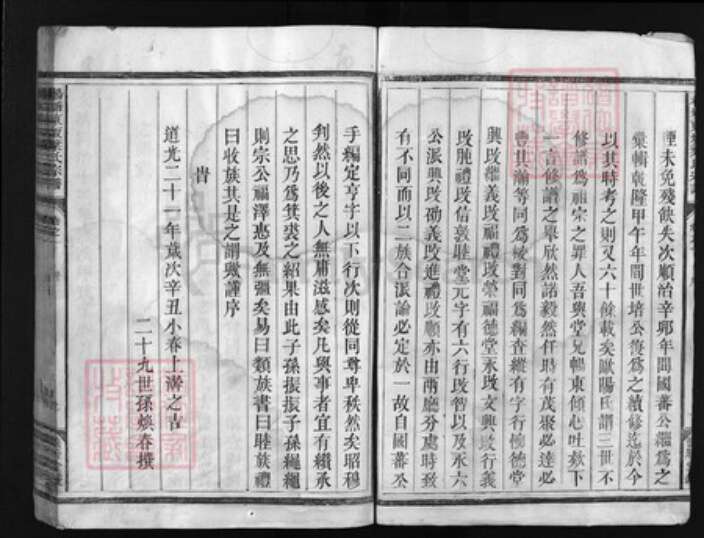 湮未免殘缺失次順治辛卯年間國蕃公繼為之
彙輯乾隆甲午年間世培公復為之續修迄於今
以其時考之則又六十餘載矣歐陽氏謂三世不
修譜為祖宗之罪人吾與堂兄暢東傾心吐欵下
一言修譜之舉欣然諾毅然任時有茂聚必達必
曹其瀚等同為校對同為編查縱有字行懷德堂
興改繼義改福禮改榮福德堂永改文興改行義
改肫禮改信敦睦堂元字有六行改智以及永六
公派興改劭義改進禮改順亦由兩廳分處時致
有不同而以二族合派論必定於一故自國蕃公
手編定亨字以下行次則從同尊卑秩然矣昭穆
判然以後之人無庸滋惑矣凡與事者宜有纘承
之思乃為箕裘之紹果由此子孫振振子孫繩繩
則宗公福澤惠及無疆矣易曰類族書曰睦族禮
曰收族其是之謂歟謹序
旹
道光二十一年歲次辛丑小春上澣之吉
二十九世孫煥春撰